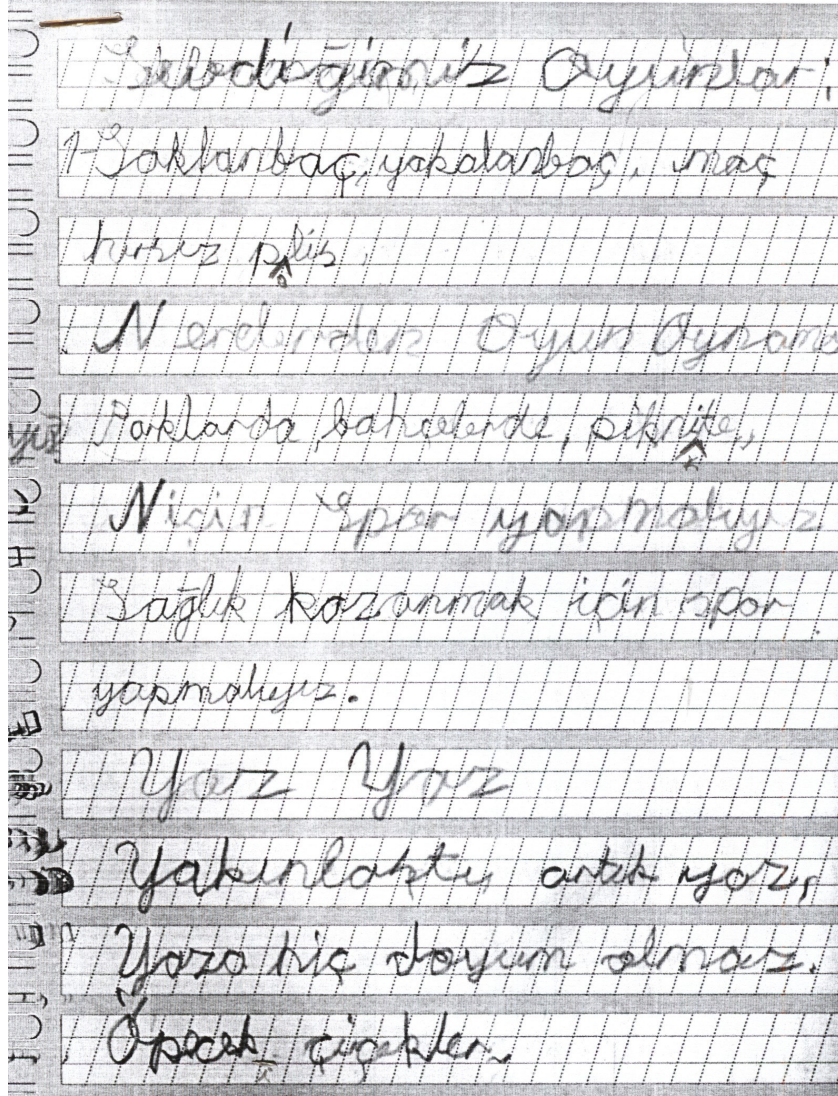 Sevdiğimiz Oyunlar:
1-Saklanbaç, yakalanbaç, maç
hırsız polis
Oyun Oynama
yız Parklarda, bahçelerde, piknikte,
Niçin Spor yapmalıyız
Sağlık kazanmak için spor
yapmalıyız.
Yaz Yaz
Yakınlaştı, artık yaz,
Yaza hiç doyum olmaz.
Öpecek çiçekler.